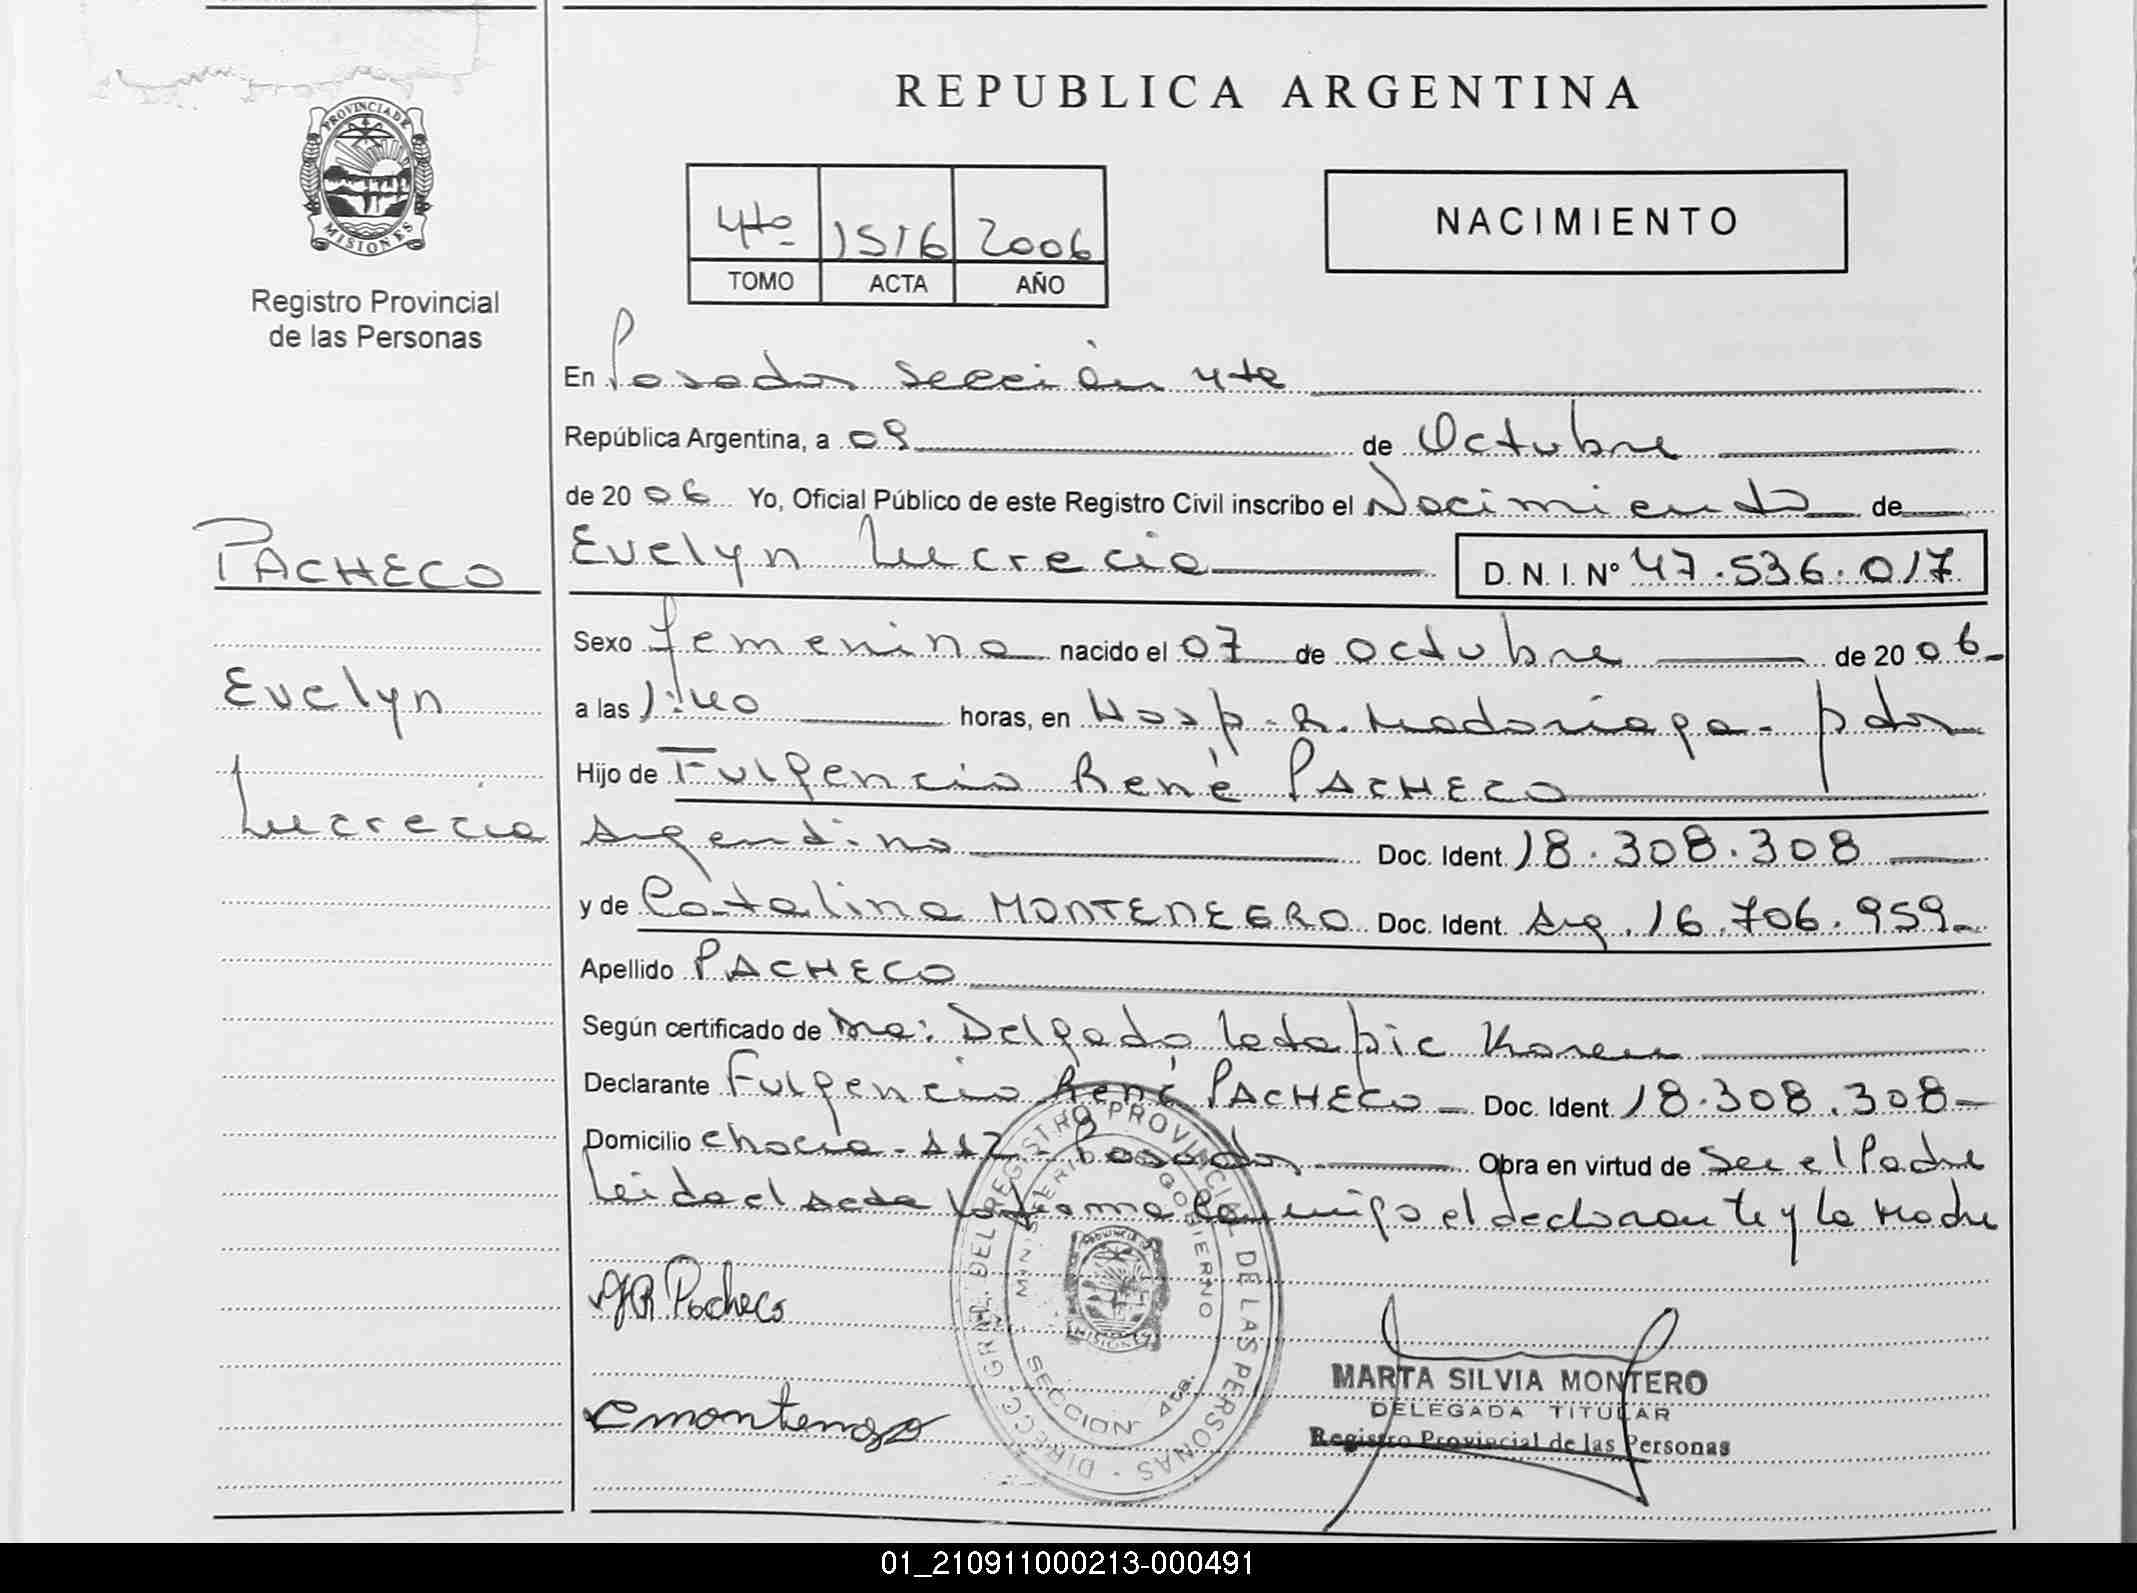 REPUBLICA ARGENTINA
PROVINCIA DE MISIONES
Registro Provincial
de las Personas
4to 1516 2006
TOMO ACTA AÑO
NACIMIENTO
En Posadas sección 4ta
República Argentina, a 09 de Octubre
de 2006 Yo, Oficial Público de este Registro Civil inscribo el Nacimiento de
PACHECO
Evelyn
Lucrecia
Evelyn Lucrecia D. N. I. Nº 47.536.017
Sexo femenino nacido el 07 de octubre de 2006-
a las 1:40 horas, en Hosp. R. Madariaga - pdas
Hijo de Fulgencio René PACHECO
Argentino Doc. Ident. 18.308.308
y de Catalina MONTENEGRO Doc. Ident. Arg. 16.706.959-
Apellido PACHECO
Según certificado de Dra: Delgado Karen
Declarante Fulgencio René PACHECO - Doc. Ident. 18.308.308-
Domicilio chacra - 112 - Posadas Obra en virtud de ser el Padre
Leida el acta la firma conmigo el declarante y la Madre
FR Pacheco
DIRECC. GRAL. DEL REGISTRO PROVINCIAL DE LAS PERSONAS
MINISTERIO DE GOBIERNO
MISIONES
SECCION 4ta.
MARTA SILVIA MONTERO
DELEGADA TITULAR
Registro Provincial de las Personas
01_210911000213-000491